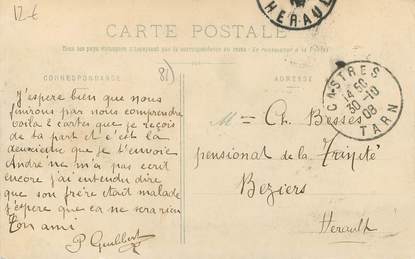 12 €
HERAUL
CARTE POSTALE
Tous les pays étrangers n'acceptent pas la correspondance au recto. Se renseigner à la Poste
CORRESPONDANCE
81)
ADRESSE
CASTRES
14 50
30 -10
08
TARN
J'espere bien que nous
finirons par nous comprendre
voila 2 cartes que je reçois
de ta part et c'est la
deuxieme que je t'envoie
André ne m'a pas ecrit
encore j'ai entendu dire
que son frère était malade
j'espere que ca ne sera rien
Ton ami
P Guilbert
M Ch. Besses
pensionat de la Trinité
Beziers
Herault